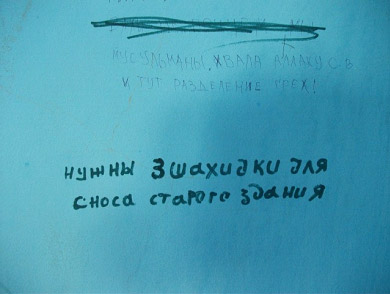 МУСУЛЬМАНЫ, ХВАЛА АЛЛАХУ С-В
И ТУТ РАЗДЕЛЕНИЕ ГРЕХ!
НУЖНЫ 3 ШАХИДКИ ДЛЯ
СНОСА СТАРОГО ЗДАНИЯ